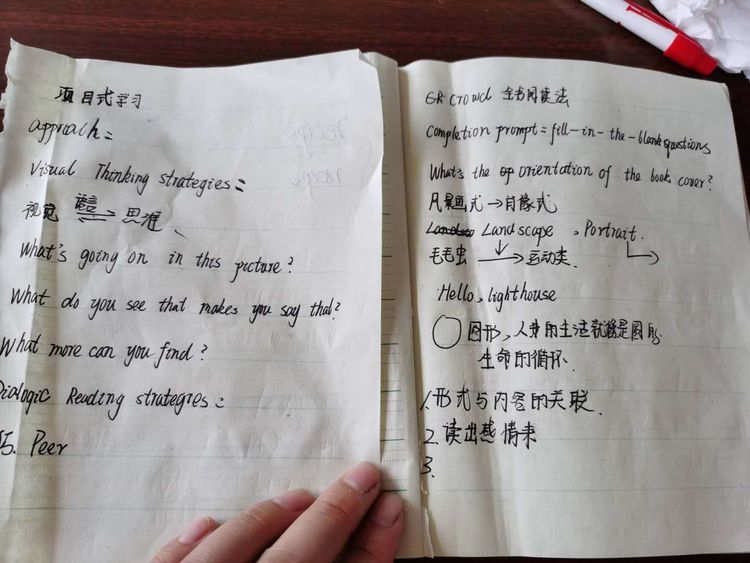 项目式学习
approach:
Visual Thinking strategies:
视觉 语言 思维、
What's going on in this picture?
What do you see that makes you say that?
What more can you find?
Dialogic Reading strategies:
Peer
CROWD 全书阅读法
Completion prompt = fill-in-the-blank questions
What's the orientation of the book cover?
风景画式→肖像式
Landscape, Portrait.
毛毛虫 → 运动类.
Hello, lighthouse
圆形,人物的生活就像是圆形
生命的循环.
1.形式与内容的关联.
2.读出感情来
3.